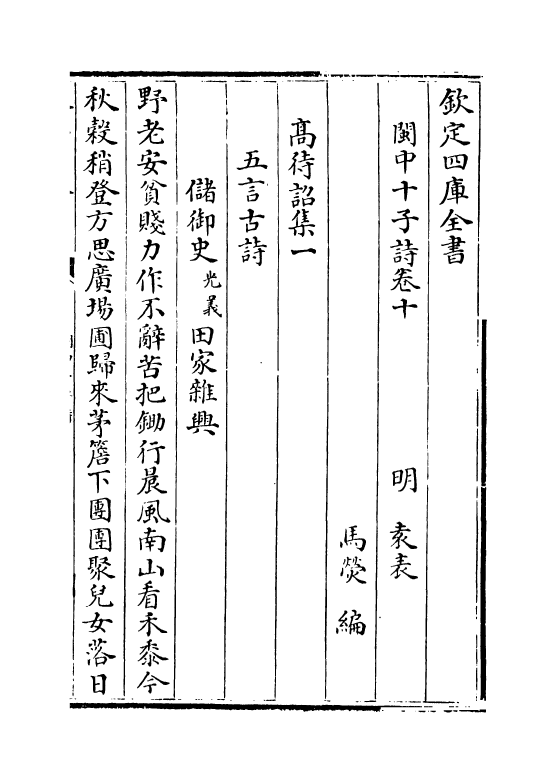 欽定四庫全書
閩中十子詩卷十
明　袁表
馬熒　編
髙待詔集一
五言古詩
儲御史光羲田家雜興
野老安貧賤力作不辭苦把鋤行晨風南山看禾黍今
秋穀稍登方思廣場圃歸來茅簷下團團聚兒女落日